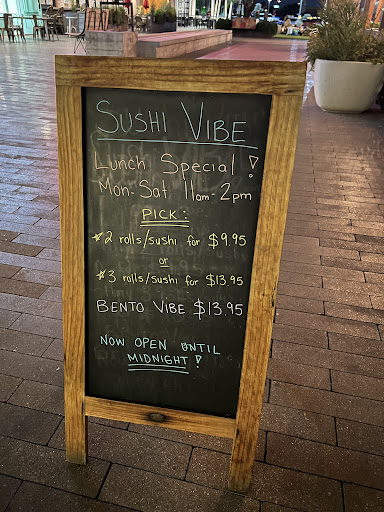 SUSHI VIBE
Lunch Special!
Mon-Sat 11am-2pm
PICK:
*2 rolls/sushi for $9.95
or
*3 rolls/sushi for $13.95
BENTO VIBE $13.95
NOW OPEN UNTIL
MIDNIGHT!